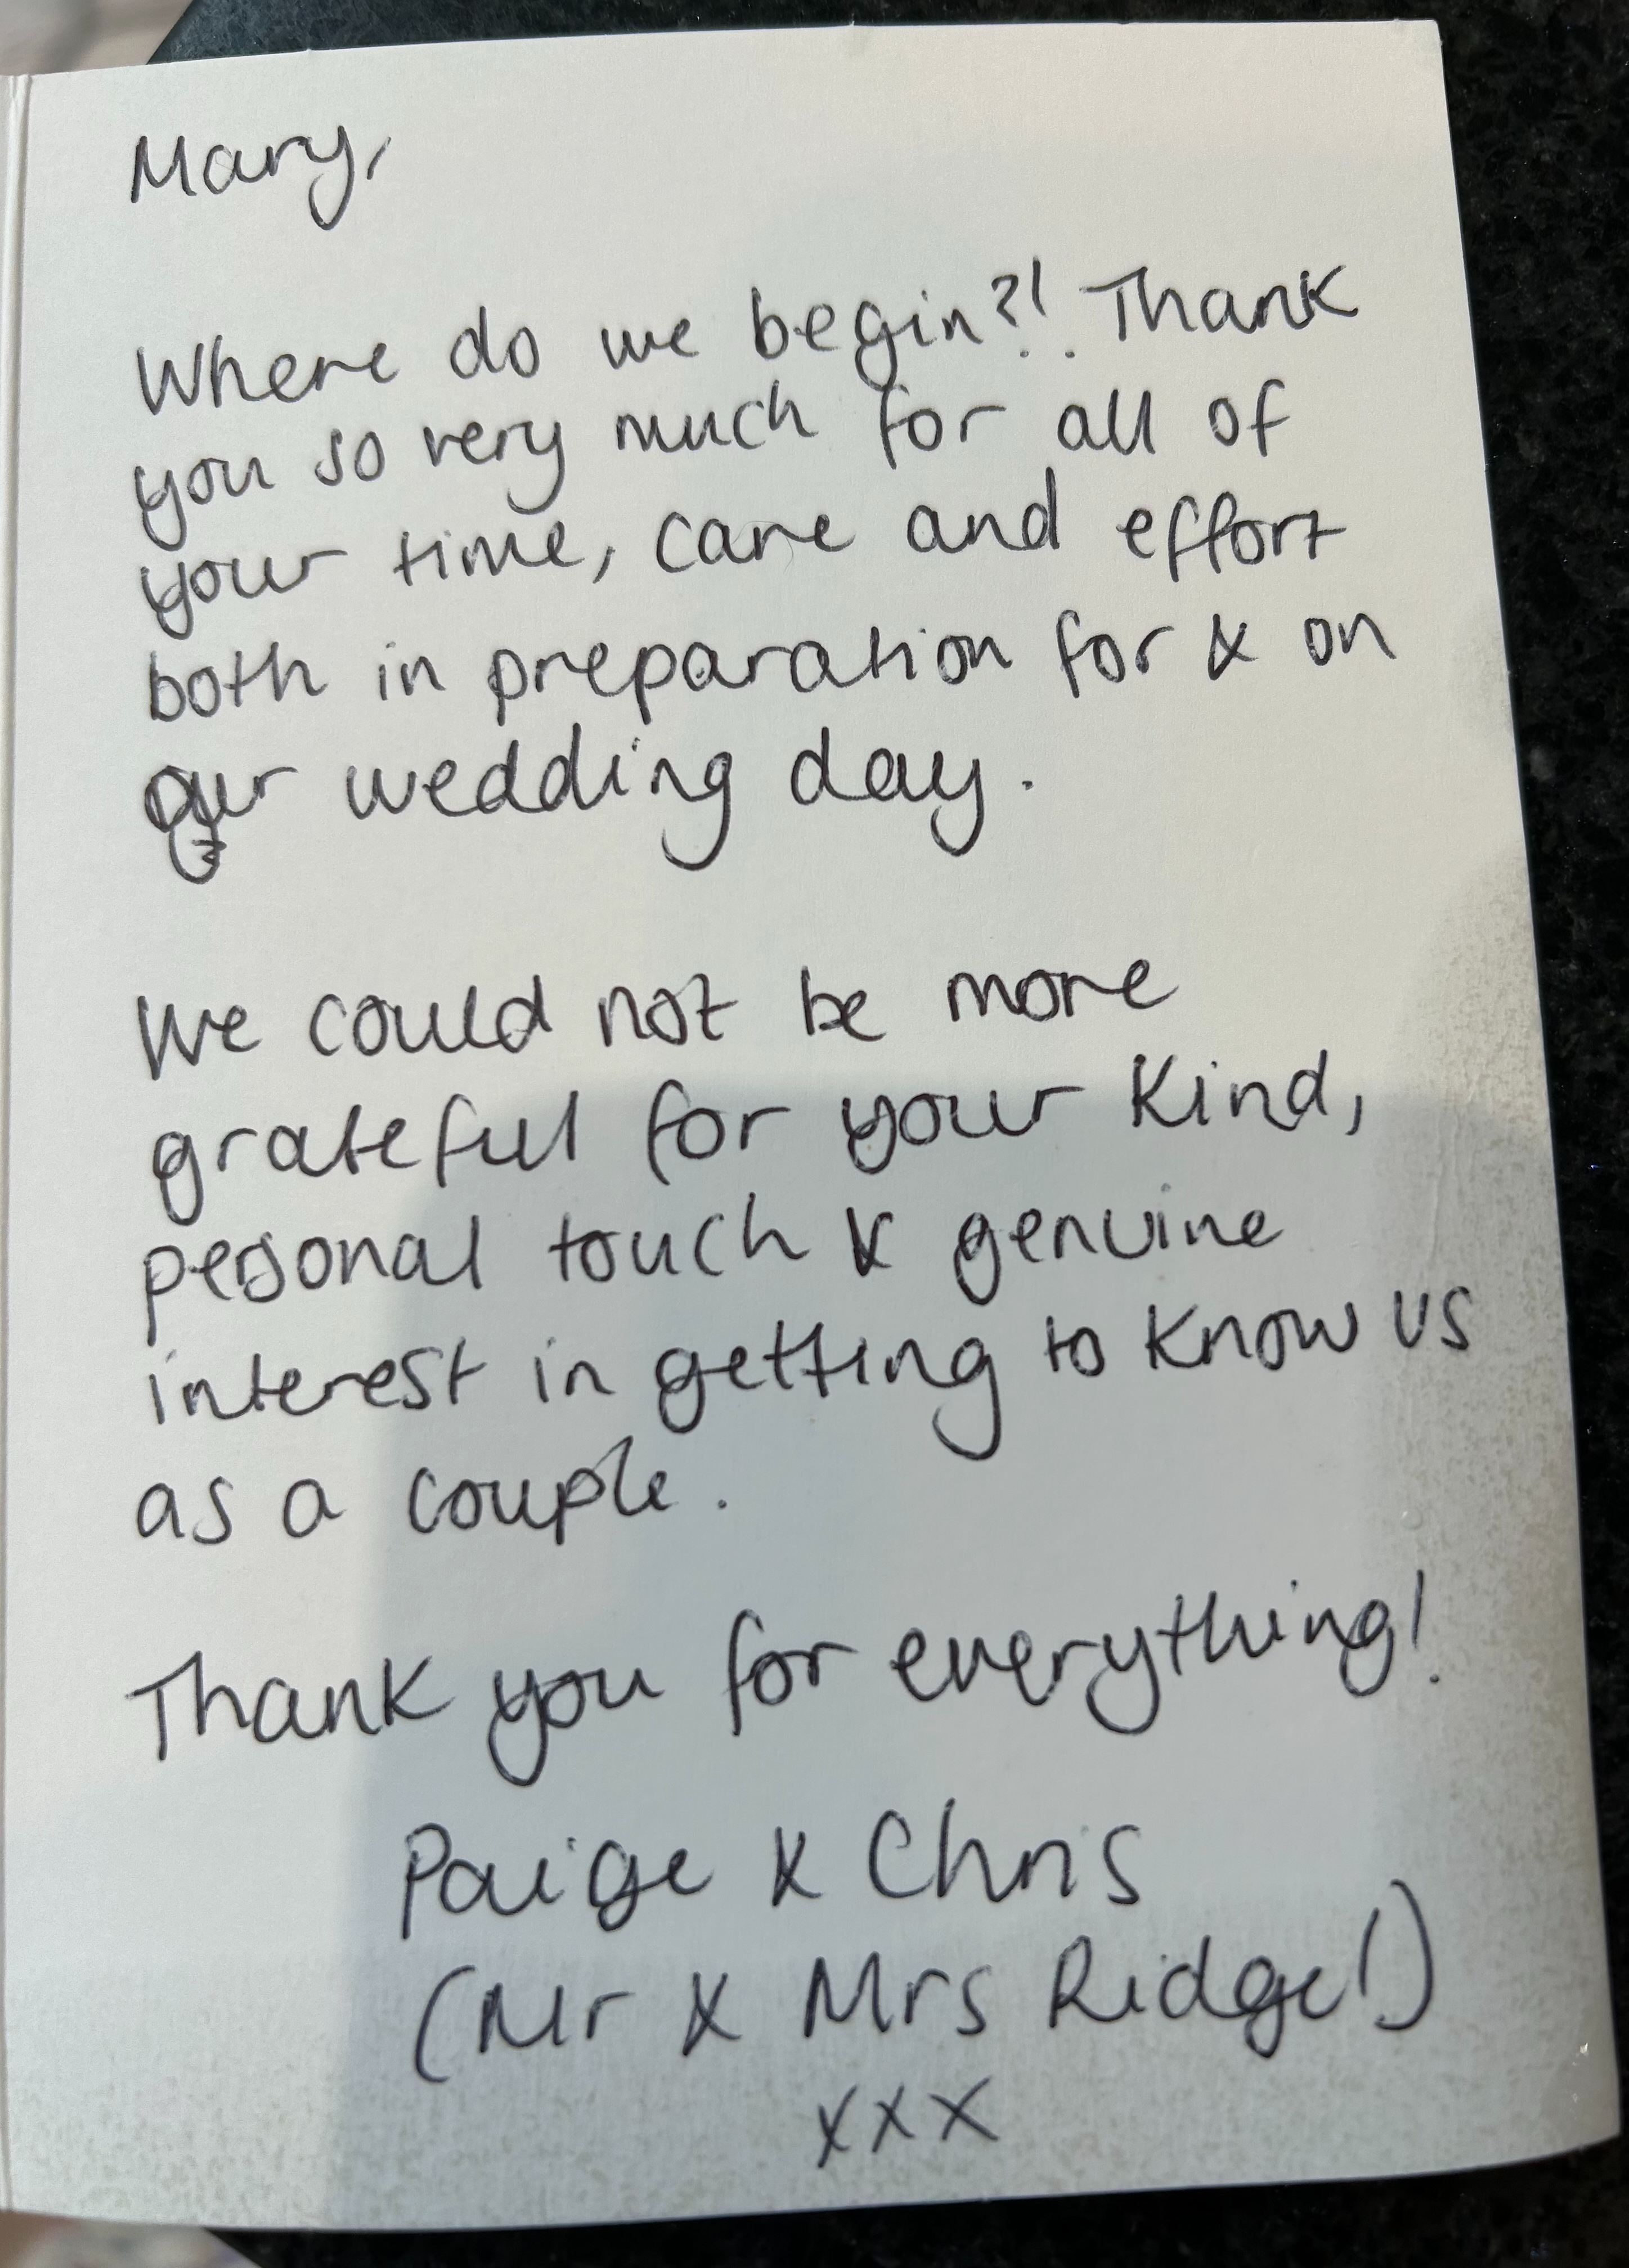 Mary,
Where do we begin?! Thank
you so very much for all of
your time, care and effort
both in preparation for & on
our wedding day.
We could not be more
grateful for your kind,
personal touch & genuine
interest in getting to know us
as a couple.
Thank you for everything!
Paige & Chris
(Mr & Mrs Ridge!)
xxx